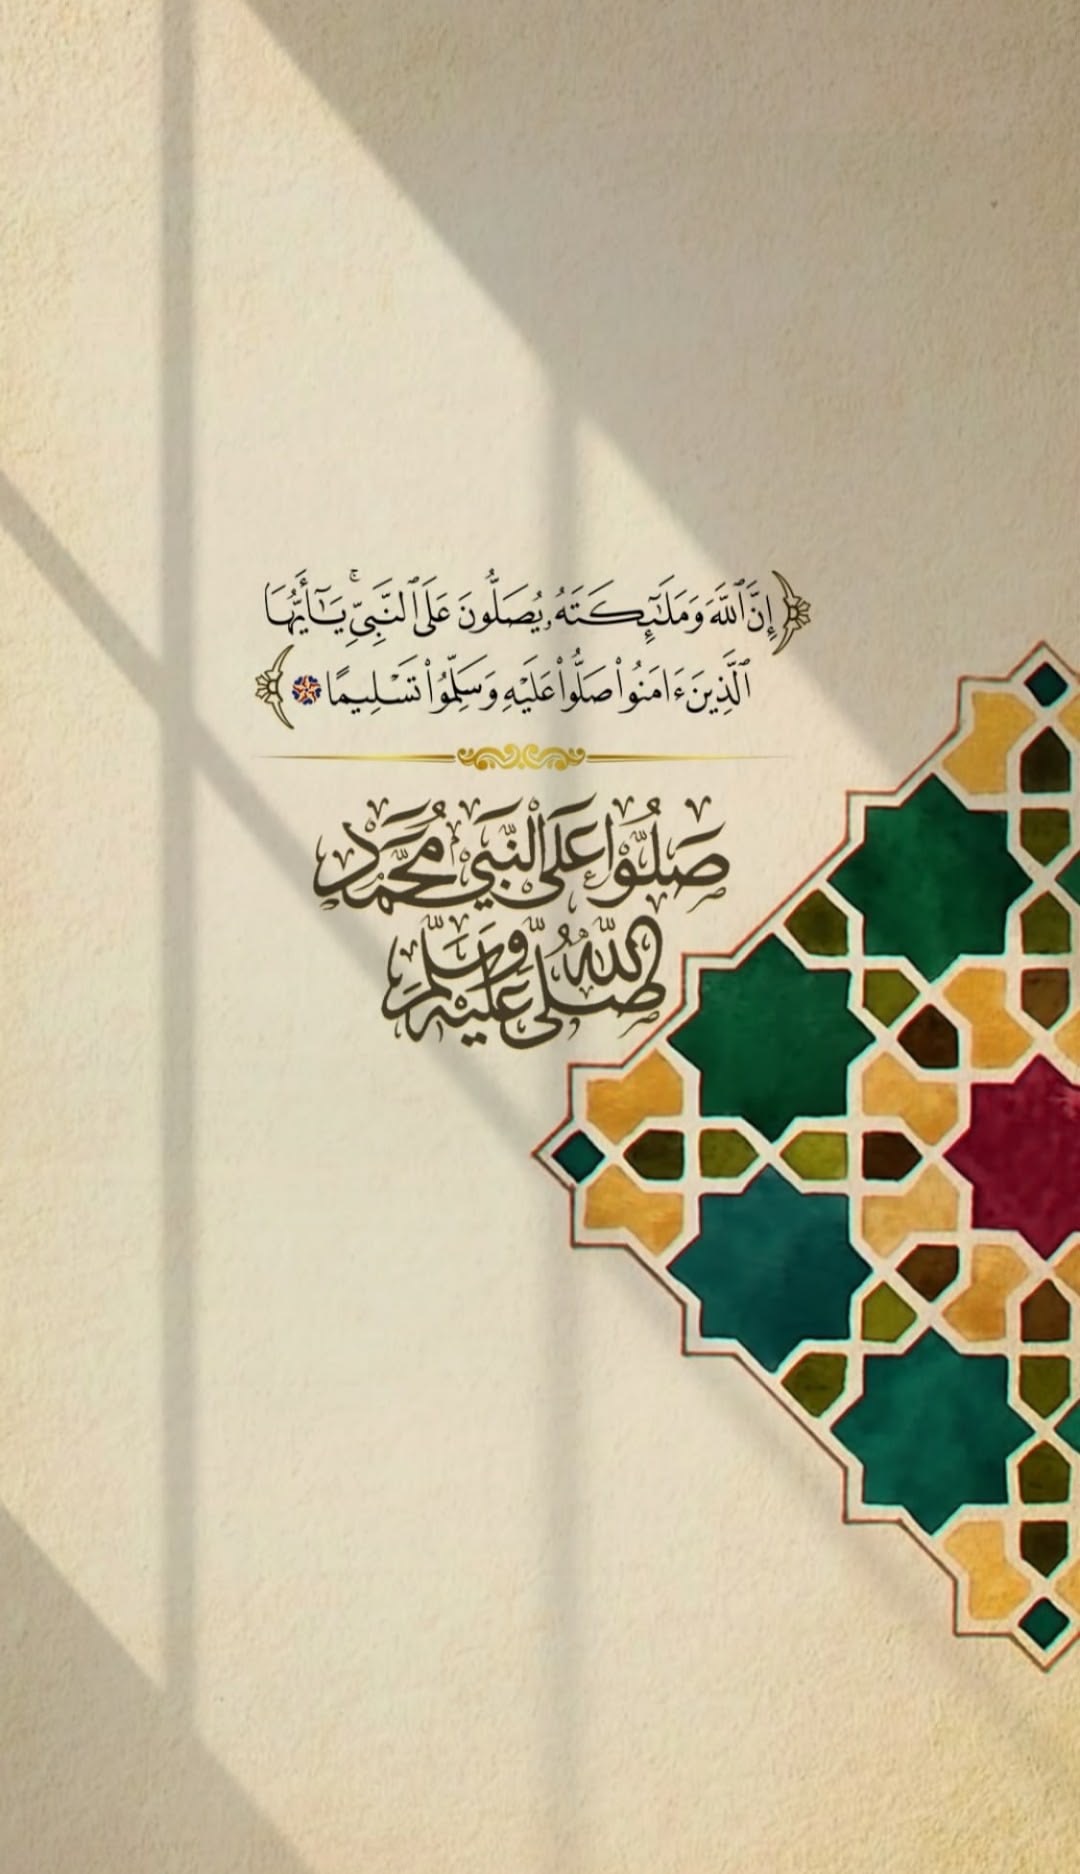 ﴿إِنَّ ٱللَّهَ وَمَلَـٰٓئِكَتَهُۥ يُصَلُّونَ عَلَى ٱلنَّبِىِّ ۚ يَـٰٓأَيُّهَا
ٱلَّذِينَ ءَامَنُوا۟ صَلُّوا۟ عَلَيْهِ وَسَلِّمُوا۟ تَسْلِيمًا﴾
صَلُّوا عَلَى النَّبِيِّ مُحَمَّد
صَلَّى اللَّهُ عَلَيْهِ وَسَلَّمَ